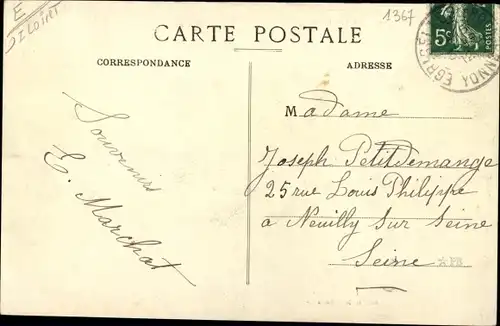 E
SILOIRT
1367
CARTE POSTALE
CORRESPONDANCE
ADRESSE
5c
POSTES
EGRE
Souvenirs
E. Marchat
Madame
Joseph Petitdemange
25 rue Louis Philippe
à Neuilly sur Seine
Seine